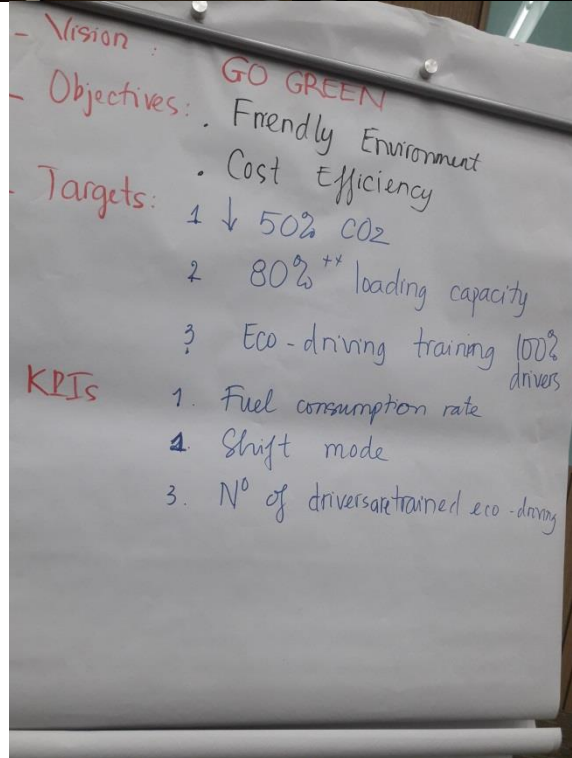 - Vision :
GO GREEN
- Objectives: . Friendly Environment
. Cost Efficiency
- Targets: 1 ↓ 50% CO2
2 80%++ loading capacity
3 Eco-driving training 100% drivers
KPIs 1. Fuel consumption rate
2. Shift mode
3. Nº of drivers are trained eco-driving